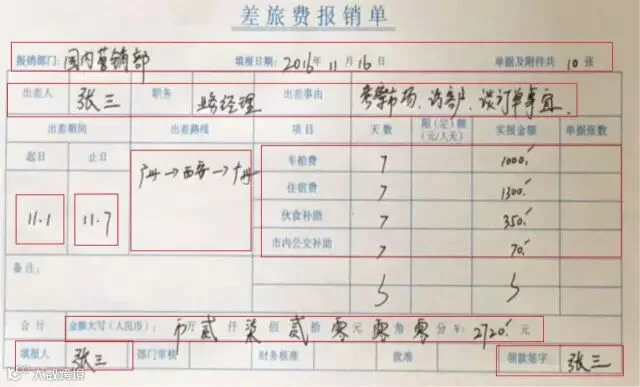 差旅费报销单
报销部门：国内营销部 填报日期：2016年11月16日 单据及附件共10张
出差人 张三 职务 业务经理 出差事由 考察市场、访客户、谈订单事宜
出差期间 出差路线 项目 天数 限(定)额(元/人天) 实报金额 单据张数
起日 止日
车船费 7 1000.
11.1 11.7 广州→西安→广州 住宿费 7 1300.
伙食补助 7 350.
市内公交补助 7 70.
备注：
合计 金额大写(人民币)： 万贰仟柒佰贰拾零元零角零分 ¥：2720.元
填报人 张三 部门审核 财务核准 批准 领款签字 张三
大敏跨境